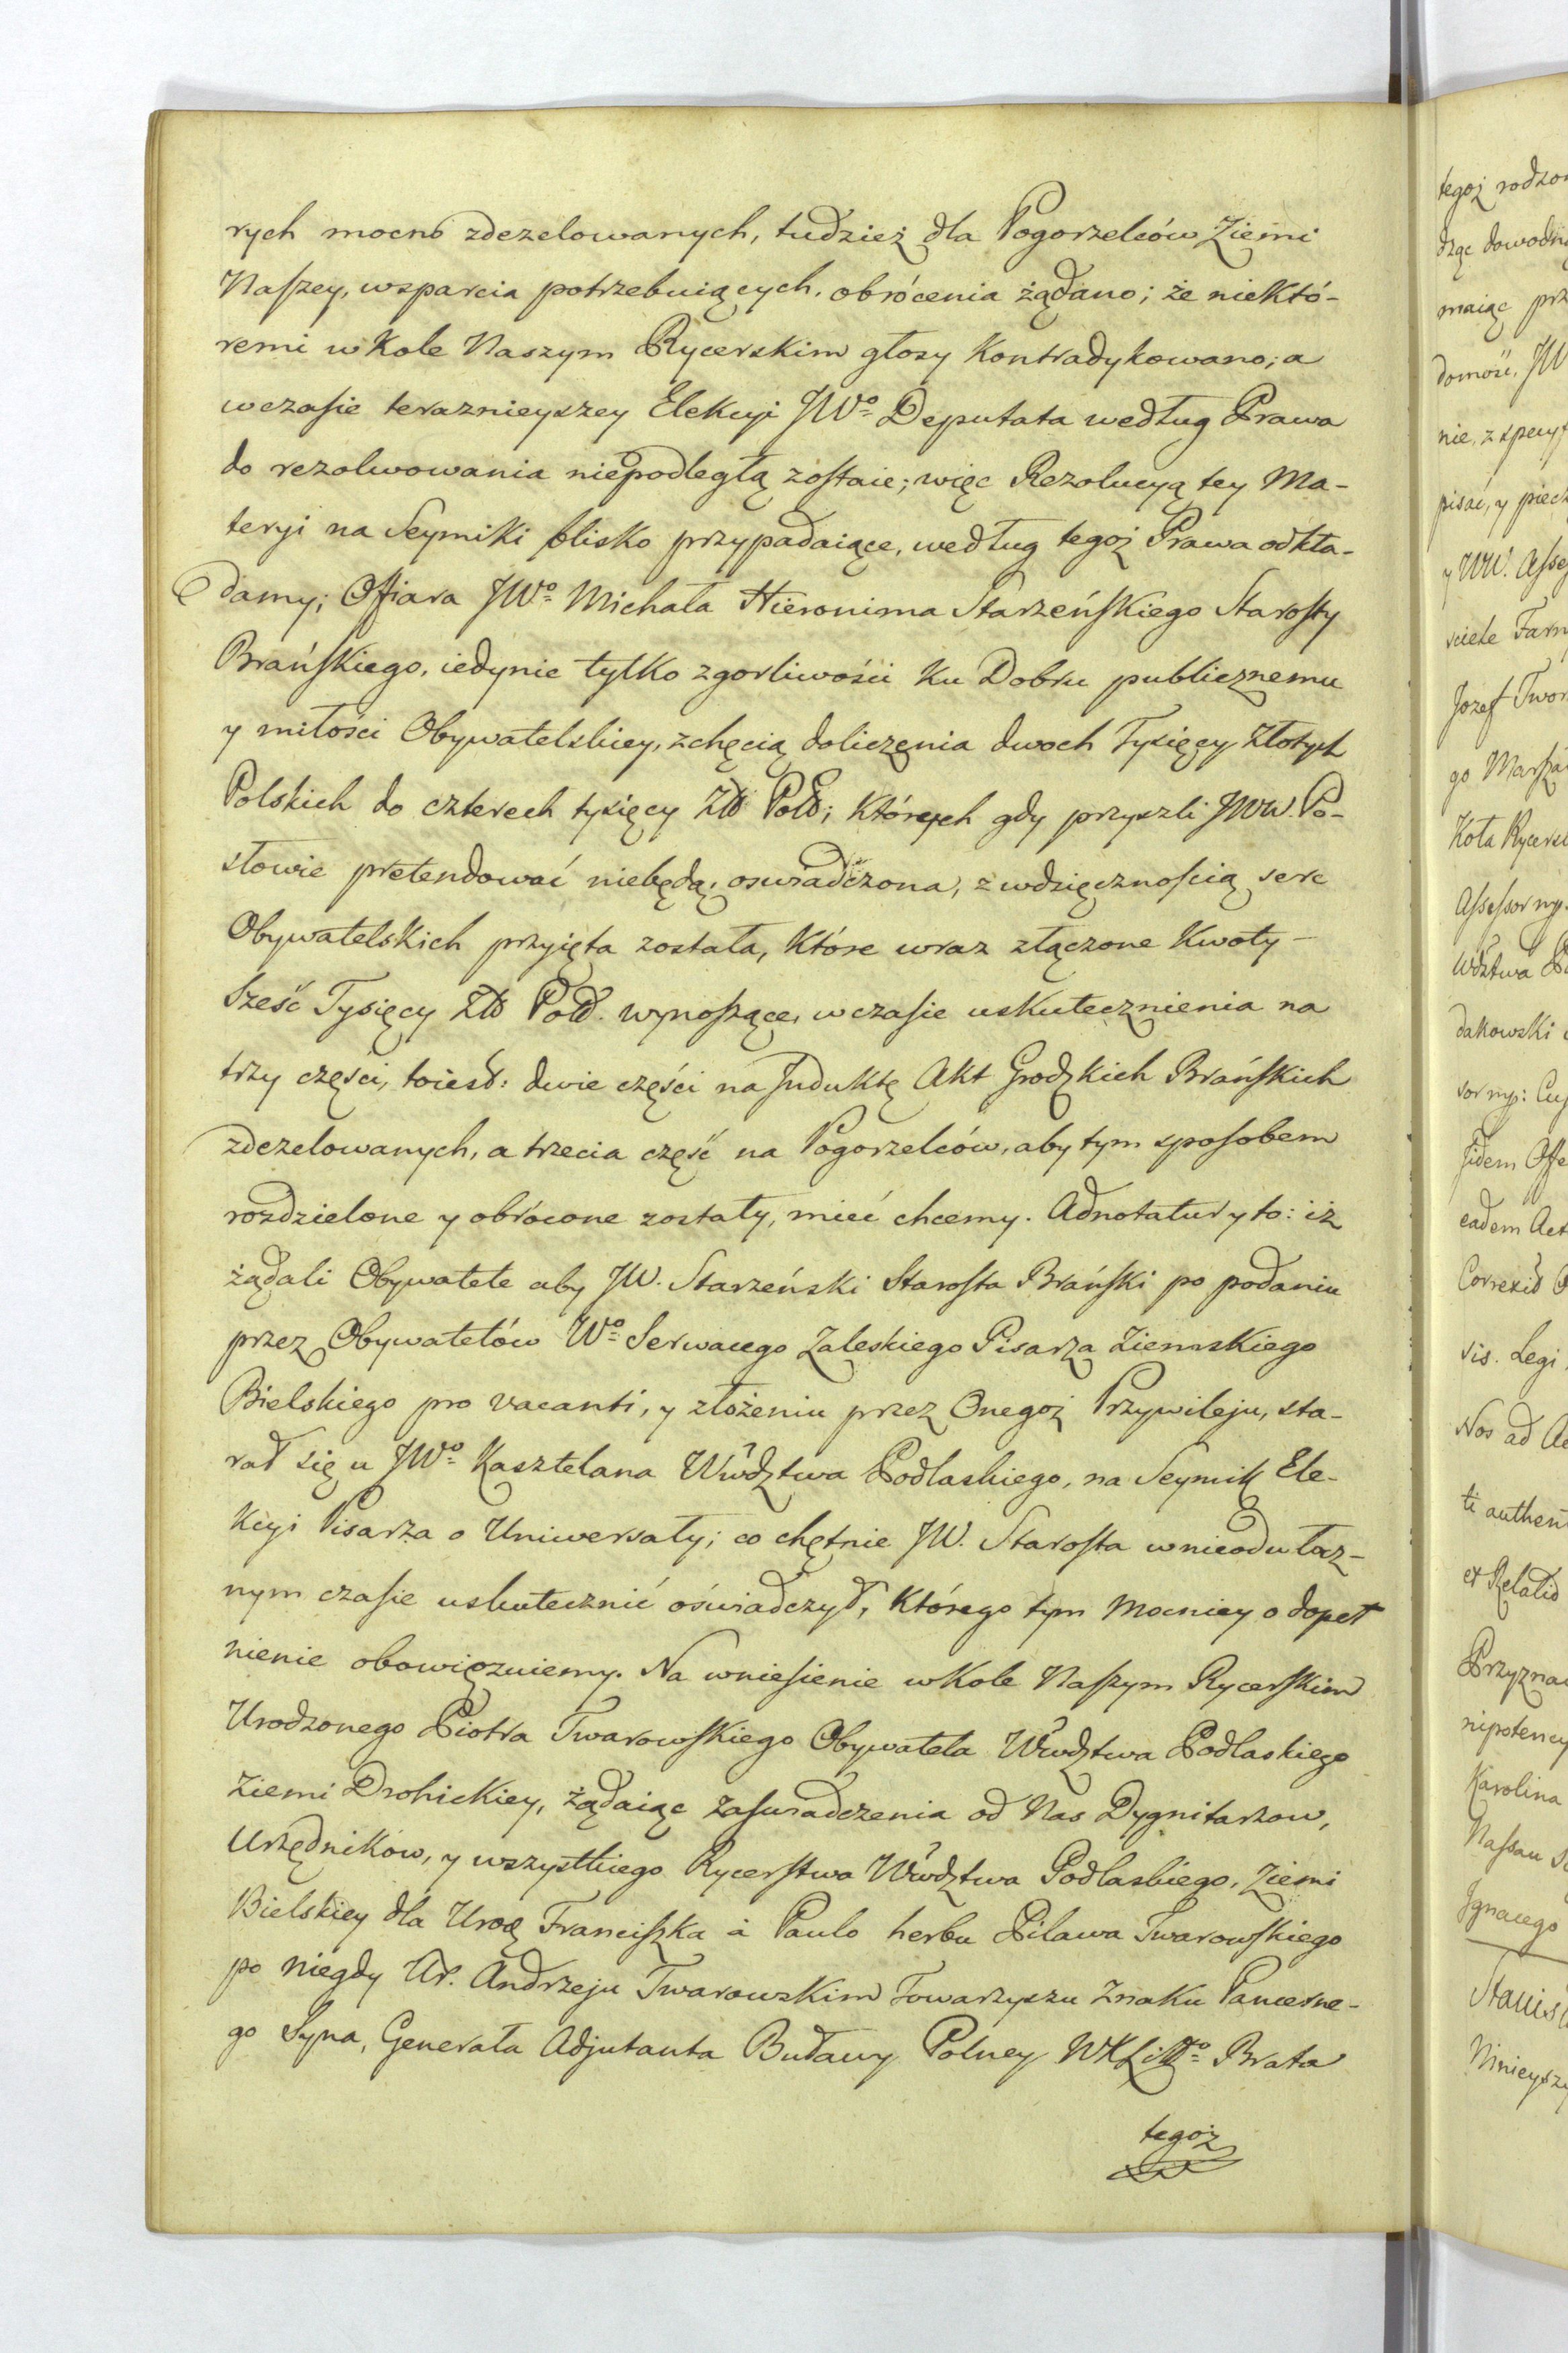 rych mocno zdezelowanych, tudzież dla Pogorzelców Ziemi
Naszey, wsparcia potrzebuiących, obrócenia żądano; że niektó-
remi w Kole Naszym Rycerskim głosy Kontradykowano; a
wczasie teraznieyszey Elekcyi JWo= Deputata według Prawa
do rezolwowania niepodległą zostaie; więc Rezolucyą tey Ma-
teryi na Seymiki blisko przypadaiące, według tegoż Prawa odkła-
damy; Offiara JWo= Michała Hieronima Starzeńskiego Starosty
Brańskiego, iedynie tylko zgorliwości ku Dobru publicznemu
y miłości Obywatelskiey, zchęcią doliczenia dwoch Tysięcy Złotych
Polskich do czterech tysięcy Zło Pols; Których gdy przyszli JWW. Po-
słowie pretendować niebędą, oswiadczona, z wdzięcznością serc
Obywatelskich przyięta została, Które wraz złączone Kwoty –
Sześć Tysięcy Zło Pols. wynoszące, wczasie uskutecznienia na
trzy części, toiest: dwie części na Induktę Akt Grodzkich Brańskich
zdezelowanych, a trzecia część na Pogorzelców, aby tym sposobem
rozdzielone y obrócone zostały, mieć chcemy. Adnotatur y to: iż
żądali Obywatele aby JW. Starzeński Starosta Brański po podaniu
przez Obywatelów Wo= Serwacego Zaleskiego Pisarza Ziemskiego
Bielskiego pro vacanti, y złożeniu przez Onegoż Przywileju, sta-
rał się u JWo= Kasztelana Wwdztwa Podlaskiego, na Seymik Ele-
kcyi Pisarza o Uniwersały; co chętnie JW. Starosta wnieodwłocz-
nym czasie uskutecznić oświadczył, Którego tym Mocniey o dopeł
nienie obowiązuiemy. Na wniesienie w Kole Naszym Rycerskim
Urodzonego Piotra Twarowskiego Obywatela Wwdztwa Podlaskiego
Ziemi Drohickiey, żądaiąc zaświadczenia od Nas Dygnitarzow,
Urzędników, y wszystkiego Rycerstwa Wwdztwa Podlaskiego, Ziemi
Bielskiey dla Urod Franciszka à Paulo herbu Pilawa Twarowskiego
po niegdy Ur. Andrzeju Twarowskim Towarzyszu Znaku Pancerne-
go Syna, Generała Adjutanta Buławy Polney WXLitto= Brata
tegoż
tegoż
maiąc
nie,
y WW.
Jozef
Koła
dakowski
eadem
vis. Legi
Nos ad
Karolina
Nassau
Jgnacego